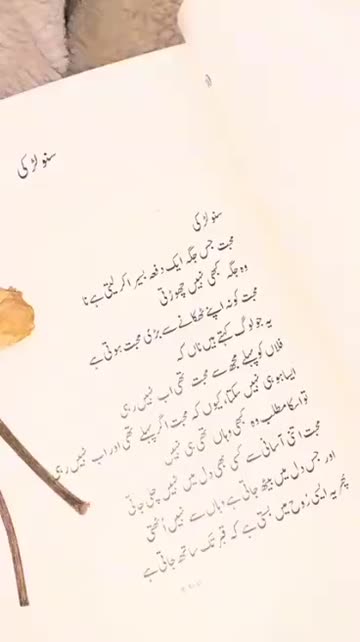 سنو لڑکی
سنو لڑکی
محبت جس جگہ ایک دفعہ بسیرا کر لیتی ہے نا
وہ جگہ کبھی نہیں چھوڑتی
محبت کو نہ اپنے ٹھکانے سے بڑی محبت ہوتی ہے
یہ جو لوگ کہتے ہیں ناں کہ
فلاں کو پہلے مجھ سے محبت تھی اب نہیں رہی
ایسا ہو ہی نہیں سکتا، کیوں کہ محبت اگر پہلے تھی اور اب نہیں رہی
تو اسکا مطلب وہ کبھی وہاں تھی ہی نہیں
محبت اتنی آسانی سے کسی بھی دل میں نہیں چلی جاتی
اور جس دل میں بیٹھ جاتی ہے وہاں سے نہیں اُٹھتی
پھر یہ ایسی رُوح میں بستی ہے کہ قبر تک ساتھ جاتی ہے